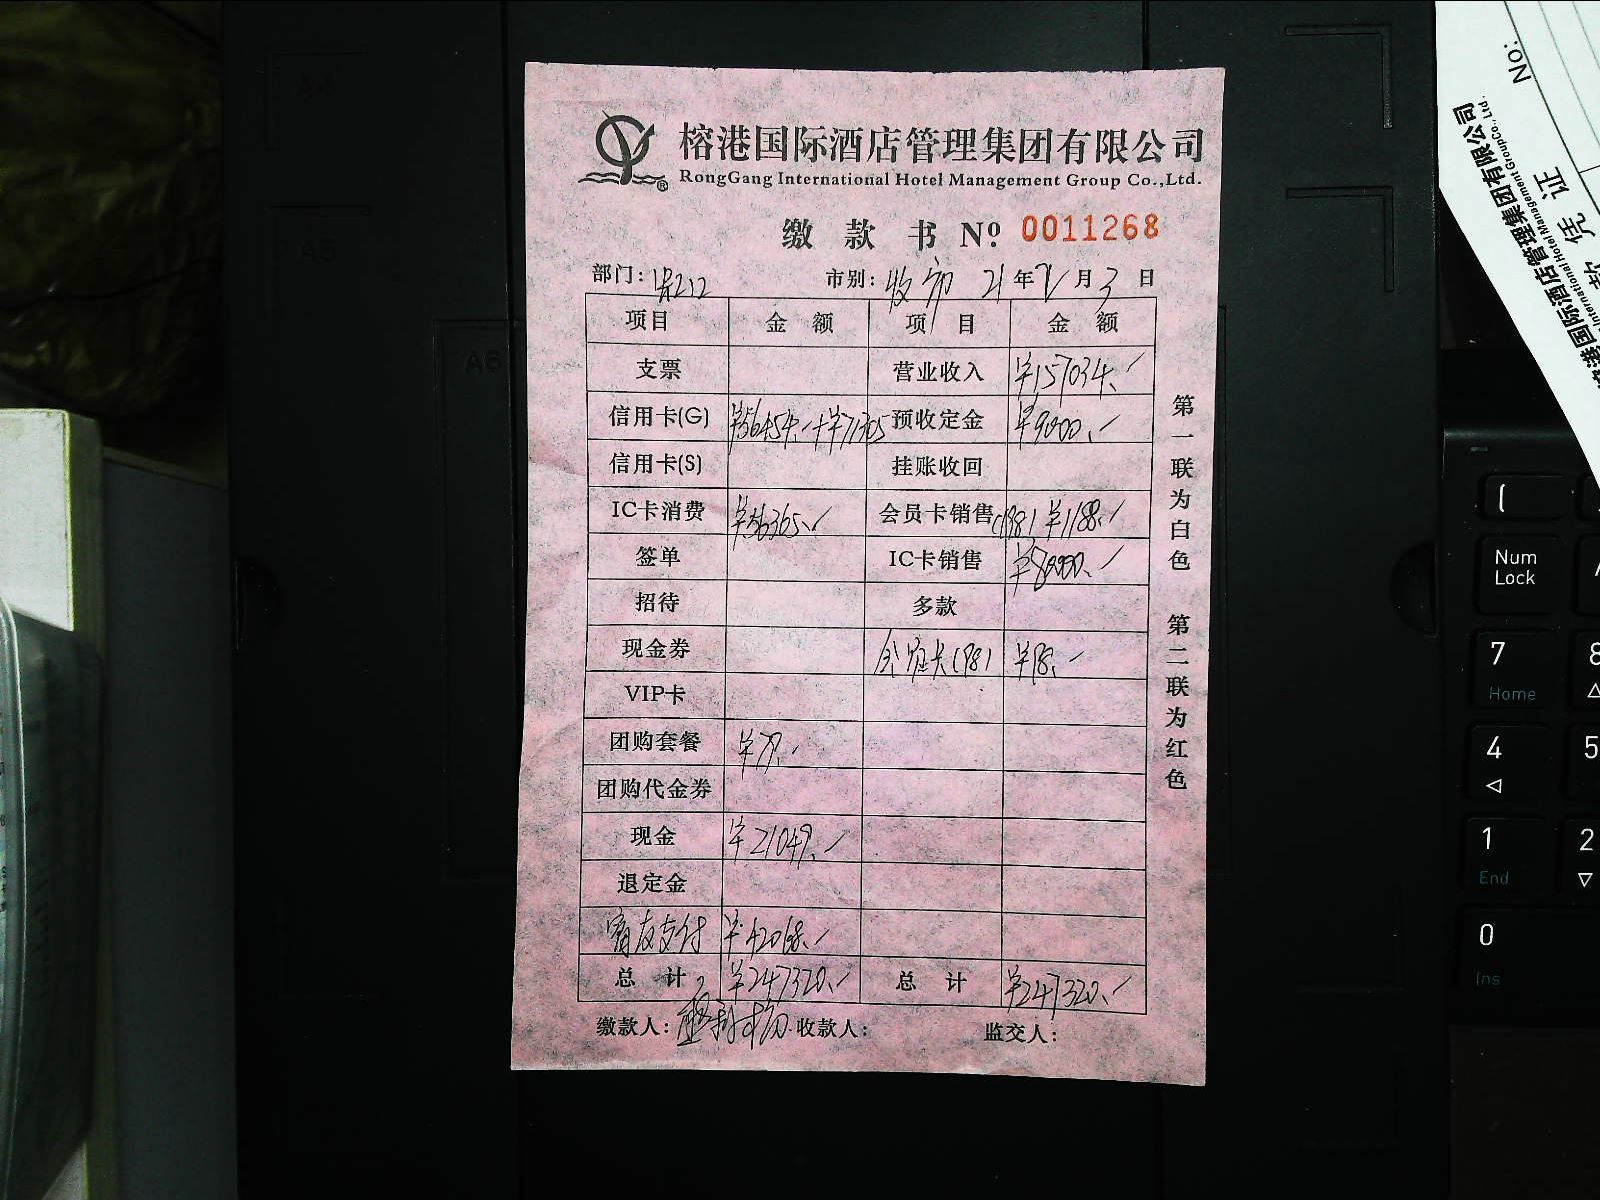 榕港国际酒店管理集团有限公司
RongGang International Hotel Management Group Co.,Ltd.
缴款书 Nº 0011268
部门: 市别: 收市 21年 月3日
项目 金额 项目 金额
支票 营业收入 ¥157034.
信用卡(G) ¥56454.+¥71305 预收定金 ¥9000.
信用卡(S) 挂账收回
IC卡消费 ¥56365. 会员卡销售(198) ¥1188.
签单 IC卡销售 ¥80000.
招待 多款
现金券 (98) ¥98.
VIP卡
团购套餐 ¥79.
团购代金券
现金 ¥21049.
退定金
支付 ¥42068.
总计 ¥247320. 总计 ¥247320.
缴款人: 收款人: 监交人:
第一联为白色 第二联为红色
No:
集团有限公司
国际酒店管理集团有限公司
International Hotel Management Group Co., Ltd.
凭证
A6
(
Num
Lock
7
Home
8
4
5
1
End
2
0
Ins